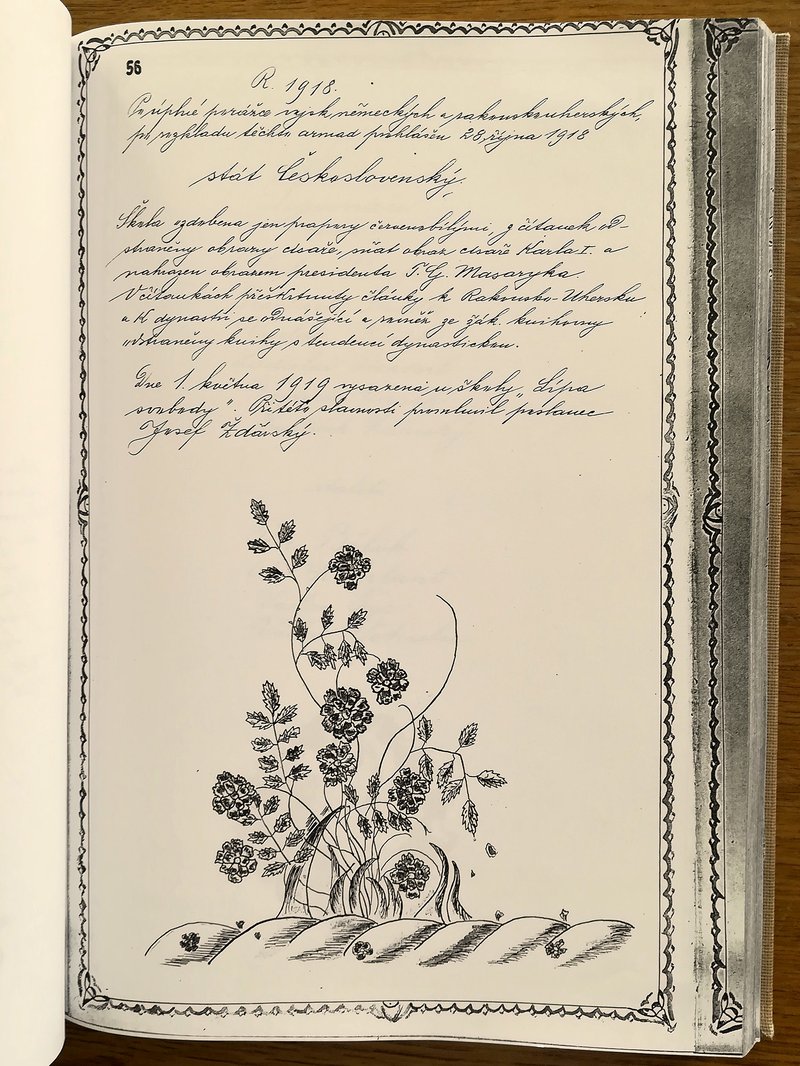 56
R. 1918.
Po úplné porážce vojsk německých a rakouskouherských,
po rozkladu těchto armad prohlášen 28. října 1918
stát Československý.
Škola ozdobena jen prapory červenobílými, z čítanek od-
straněny obrazy císaře, sňat obraz císaře Karla I. a
nahrazen obrazem presidenta T. G. Masaryka.
V čítankách přeškrtnuty články k Rakousko-Uhersku
a k dynastii se odnášející a rovněž ze žák. knihovny
odstraněny knihy s tendencí dynastickou.
Dne 1. května 1919 vysazena u školy „Lípa
svobody". Při této slavnosti promluvil poslanec
Josef Žďárský.